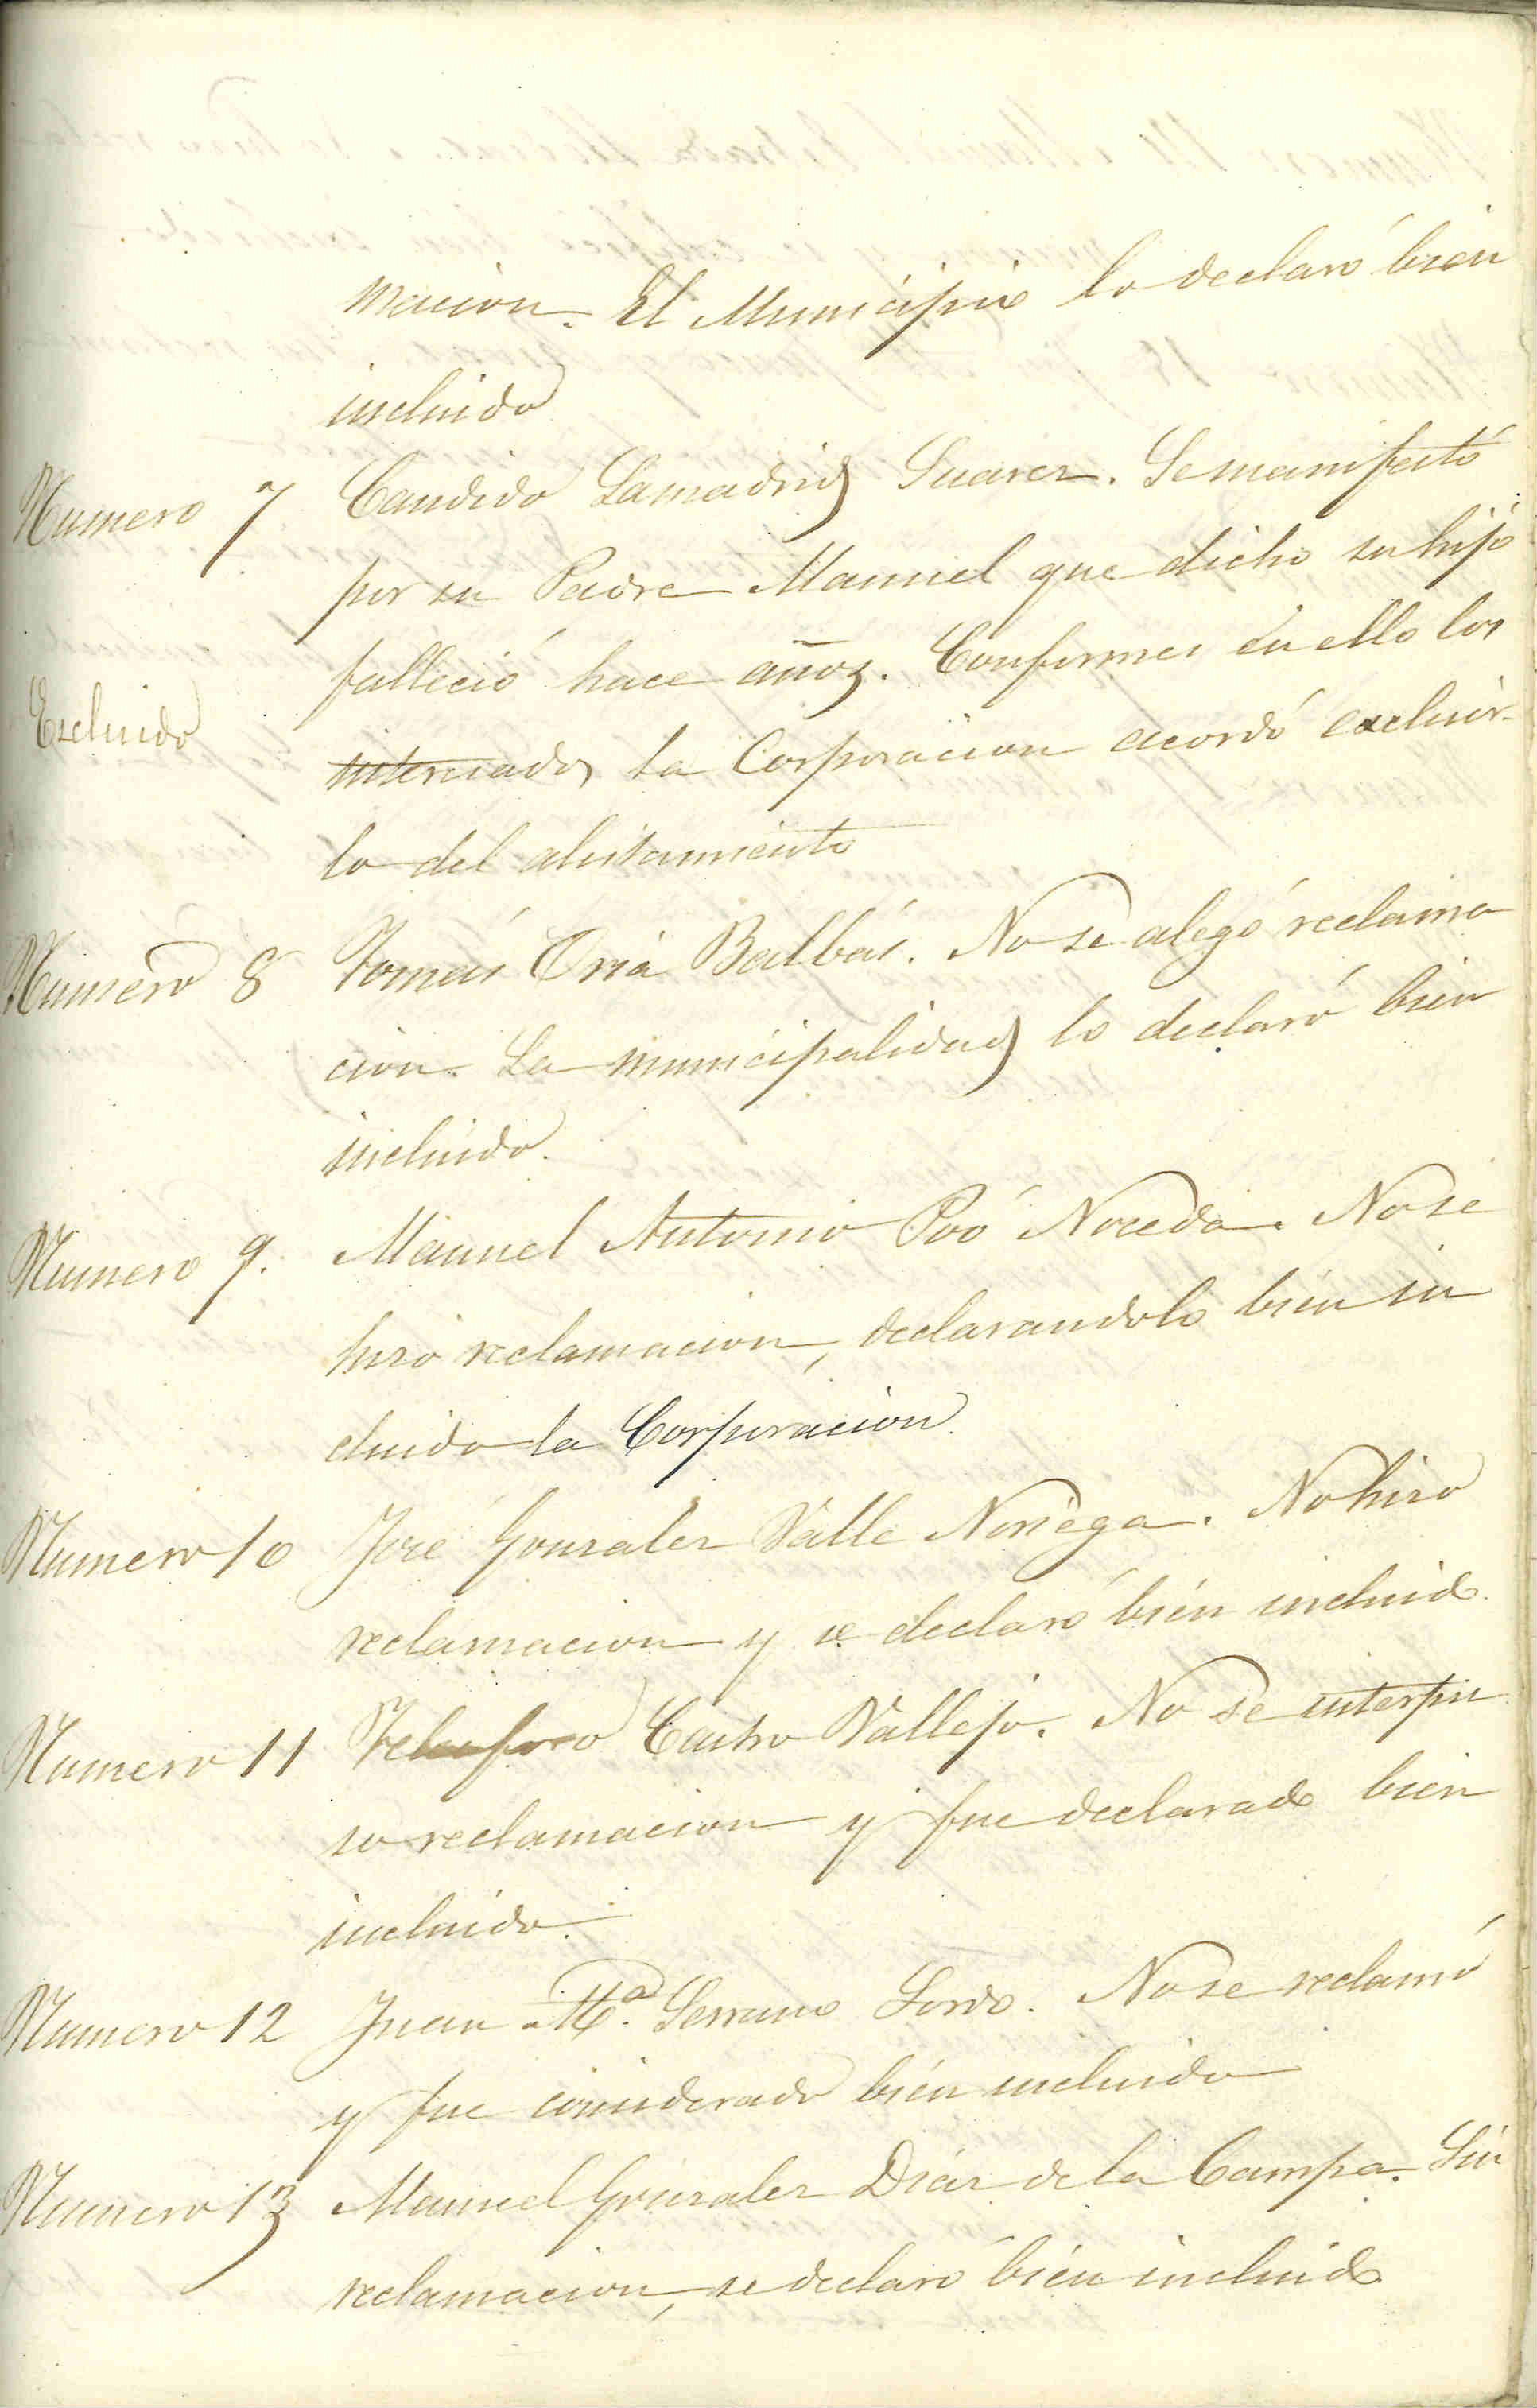 macion. El Municipio lo declaró bien
incluido
Numero 7 Candido Lamadrid Suarez. Se manifestó
por su Padre Manuel que dicho su hijo
falleció hace años. Conformes en ello los
Escluido
interesados la Corporacion acordó excluir-
lo del alistamiento
Numero 8 Tomás Oria Balbás. No se alegó reclama
cion. La municipalidad lo declaró bien
incluido.
Numero 9. Manuel Antonio Poó Noceda. No se
hizo reclamacion, declarandolo bien in
cluido la Corporacion.
Numero 10 José Gonzalez Valle Noriega. No hizo
reclamacion y se declaró bien incluido.
Numero 11 Telesforo Castro Vallejo. No se interpu
so reclamacion y fue declarado bien
incluido.
Numero 12 Juan Mª. Serrano Sordo. No se reclamó
y fue considerado bien incluido
Numero 13 Manuel Gonzalez Diáz de la Campa. Sin
reclamacion, se declaró bien incluido